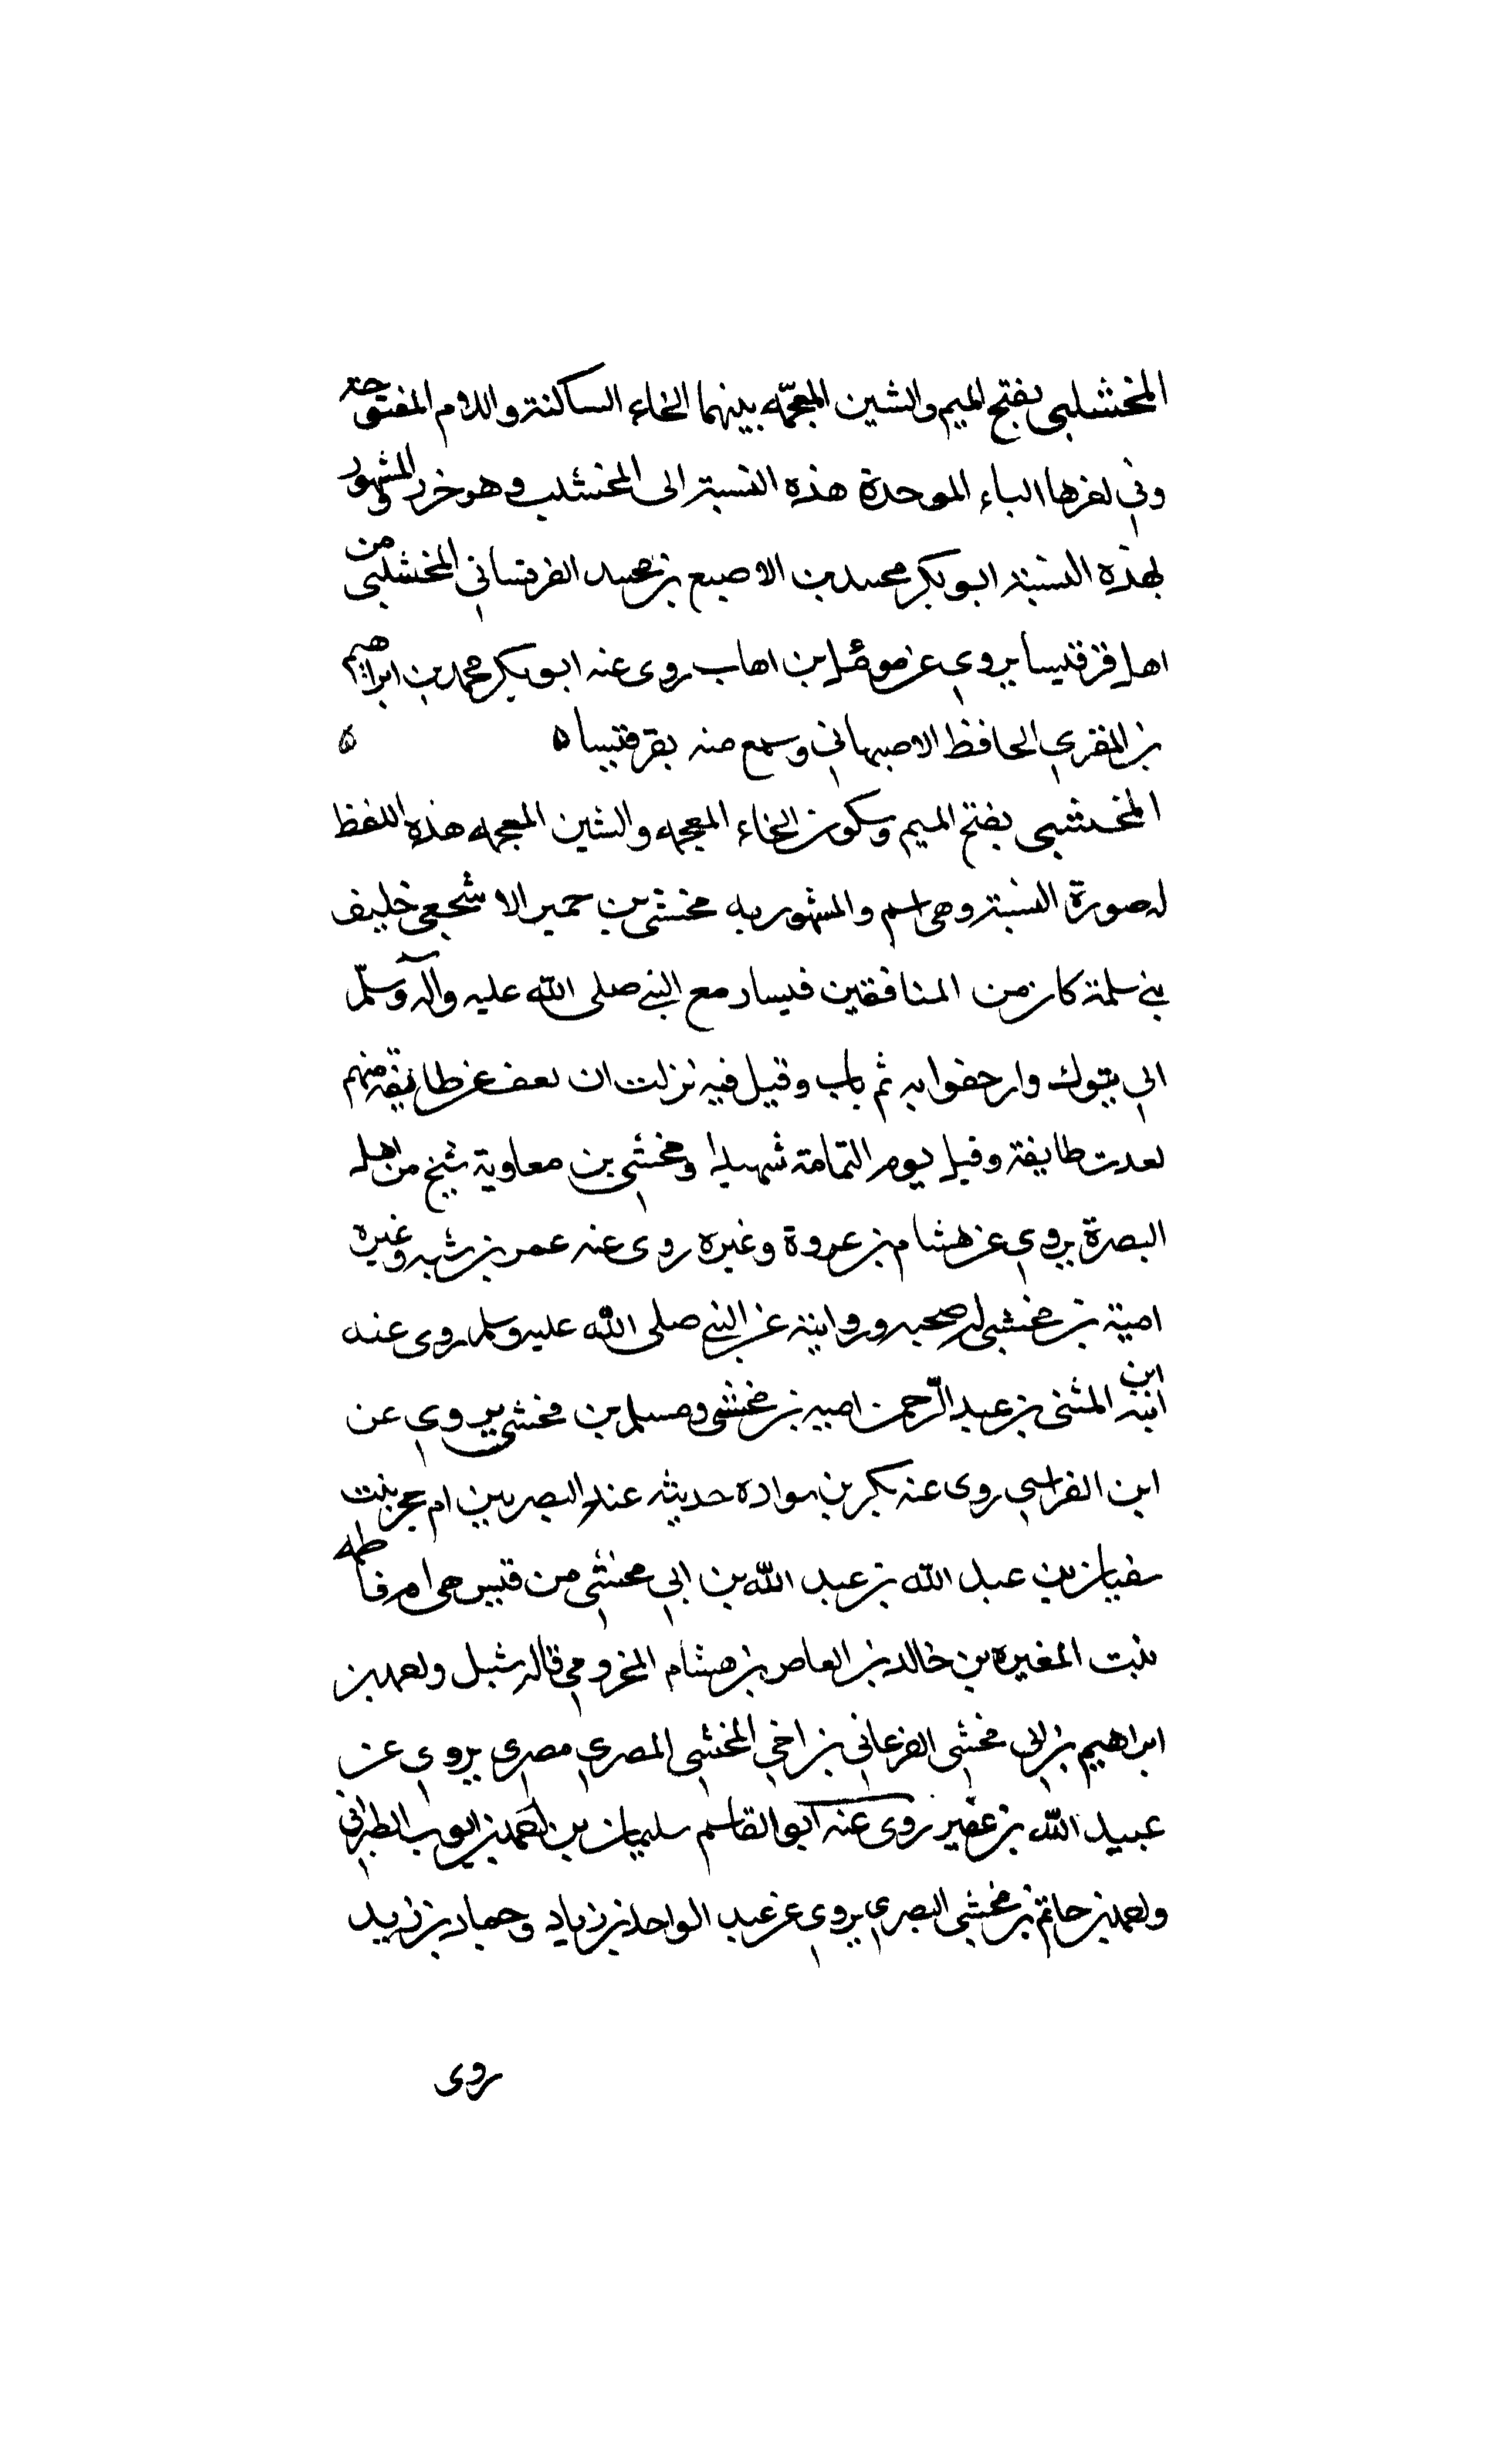 المخشلبي بفتح الميم والشين المعجمه بينهما الخاء الساكنة واللام المفتوحة
وفي اخرها الباء الموحدة هذه النسبة الى المخشلب وهو خرز والمشهور
بهذه النسبة ابو بكر محمد بن الاصبع بن محمد القرقساني المخشلبي من
اهل قرقيسا يروي عن مومل بن اهاب روى عنه ابو بكر محمد بن ابراهيم
بن المقري الحافظ الاصبهاني وسمع منه بقرقيسيا ه ه
المخشبي بفتح الميم وسكون الخاء المعجمه والشين المعجمه هذه اللفظ
له صورة النسبة وهي اسم والمشهور به مخشي بن حمير الاشجعي خليف
بني سلمة كان من المنافقين فسار مع النبي صلى الله عليه وآله وسلم
الى تبوك وارجفوا به ثم تاب وقيل فيه نزلت ان نعف عن طايفة منهم
نعدت طايفة وقيل يوم التمامة شهيدا ومخشي بن معاوية شيخ من اهل
البصرة يروي عن هشام بن عروة وغيره روى عنه عمر بن شبه وغيره
امية بن مخشي له صحبه ورواية عن النبي صلى الله عليه وسلم روى عنه
ابن ابنه المثنى بن عبد الرحمن اميه بن مخشي ومسلم بن مخشي يروي عن
ابن الفراسي روى عنه بكر بن سواده حديثه عند البصريين ام حجر بنت
سفيان بن عبد الله بن عبد الله بن ابي مخشي من قيس هي ام فاطمه
بنت المغيره بن خالد بن العاص بن هشام المخزومي قاله شبل واحمد بن
ابراهيم بن ابي مخشي الفرغاني بن اخي المخشي المصري مصري يروي عن
عبيد الله بن عفير روى عنه ابو القاسم سليمان بن احمد بن ايوب الطبراني
واحمد بن حاتم بن مخشي البصري يروي عن عبد الواحد بن زياد وحماد بن زيد
روى